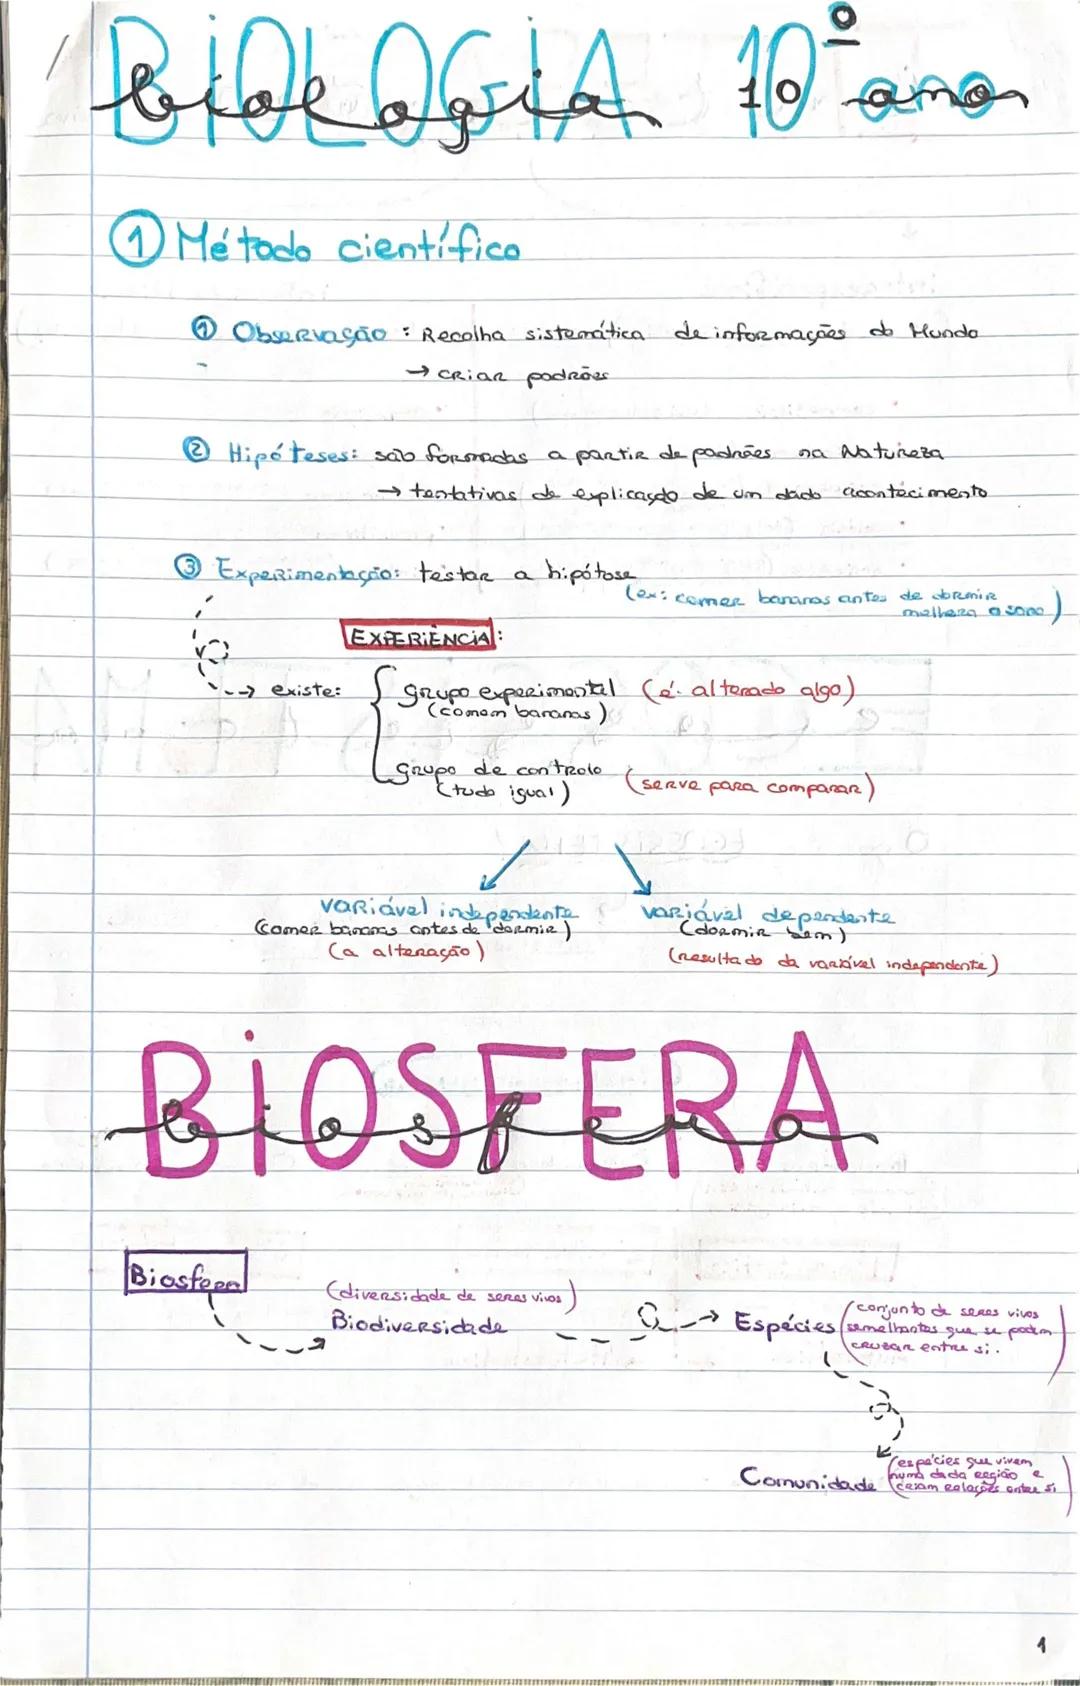 BIOLOGIA 10º ano
biologia 10 ano
1 Método científico
1 Observação : Recolha sistemática de informações do Mundo
→ criar padrões
2 Hipóteses: são formadas a partir de padrões na Natureza
→ tentativas de explicação de um dado acontecimento
3 Experimentação: testar a hipótose
(ex: comer bananas antes de dormir
melhora o sono)
EXPERIÊNCIA:
existe:
grupo experimental (é alterado algo)
(comem bananas)
grupo de controlo (serve para comparar)
(tudo igual)
variável independente
(comer bananas antes de dormir)
(a alteração)
variável dependente
(dormir bem)
(resultado da variável independente)
BIOSFERA
biosfera
Biosfera
(diversidade de seres vivos)
Biodiversidade
Espécies (conjunto de seres vivos
semelhantes que se podem
cruzar entre si.
Comunidade (espécies que vivem
numa dada região e
criam relações entre si)
1